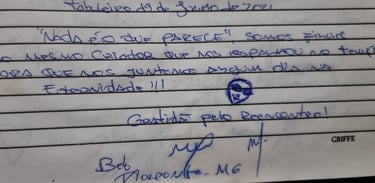 Tabuleiro 19 de Junho de 2021
"NADA É O QUE PARECE" SOMOS FILHOS
O MESMO CRIADOR QUE NOS ESPALHOU NO TEMPO
QUE NOS JUNTEMOS ALGUM DIA NA
ETERNIDADE !!!
Gratidão pelo Reencontro!
GRIFFE
Beto
MG